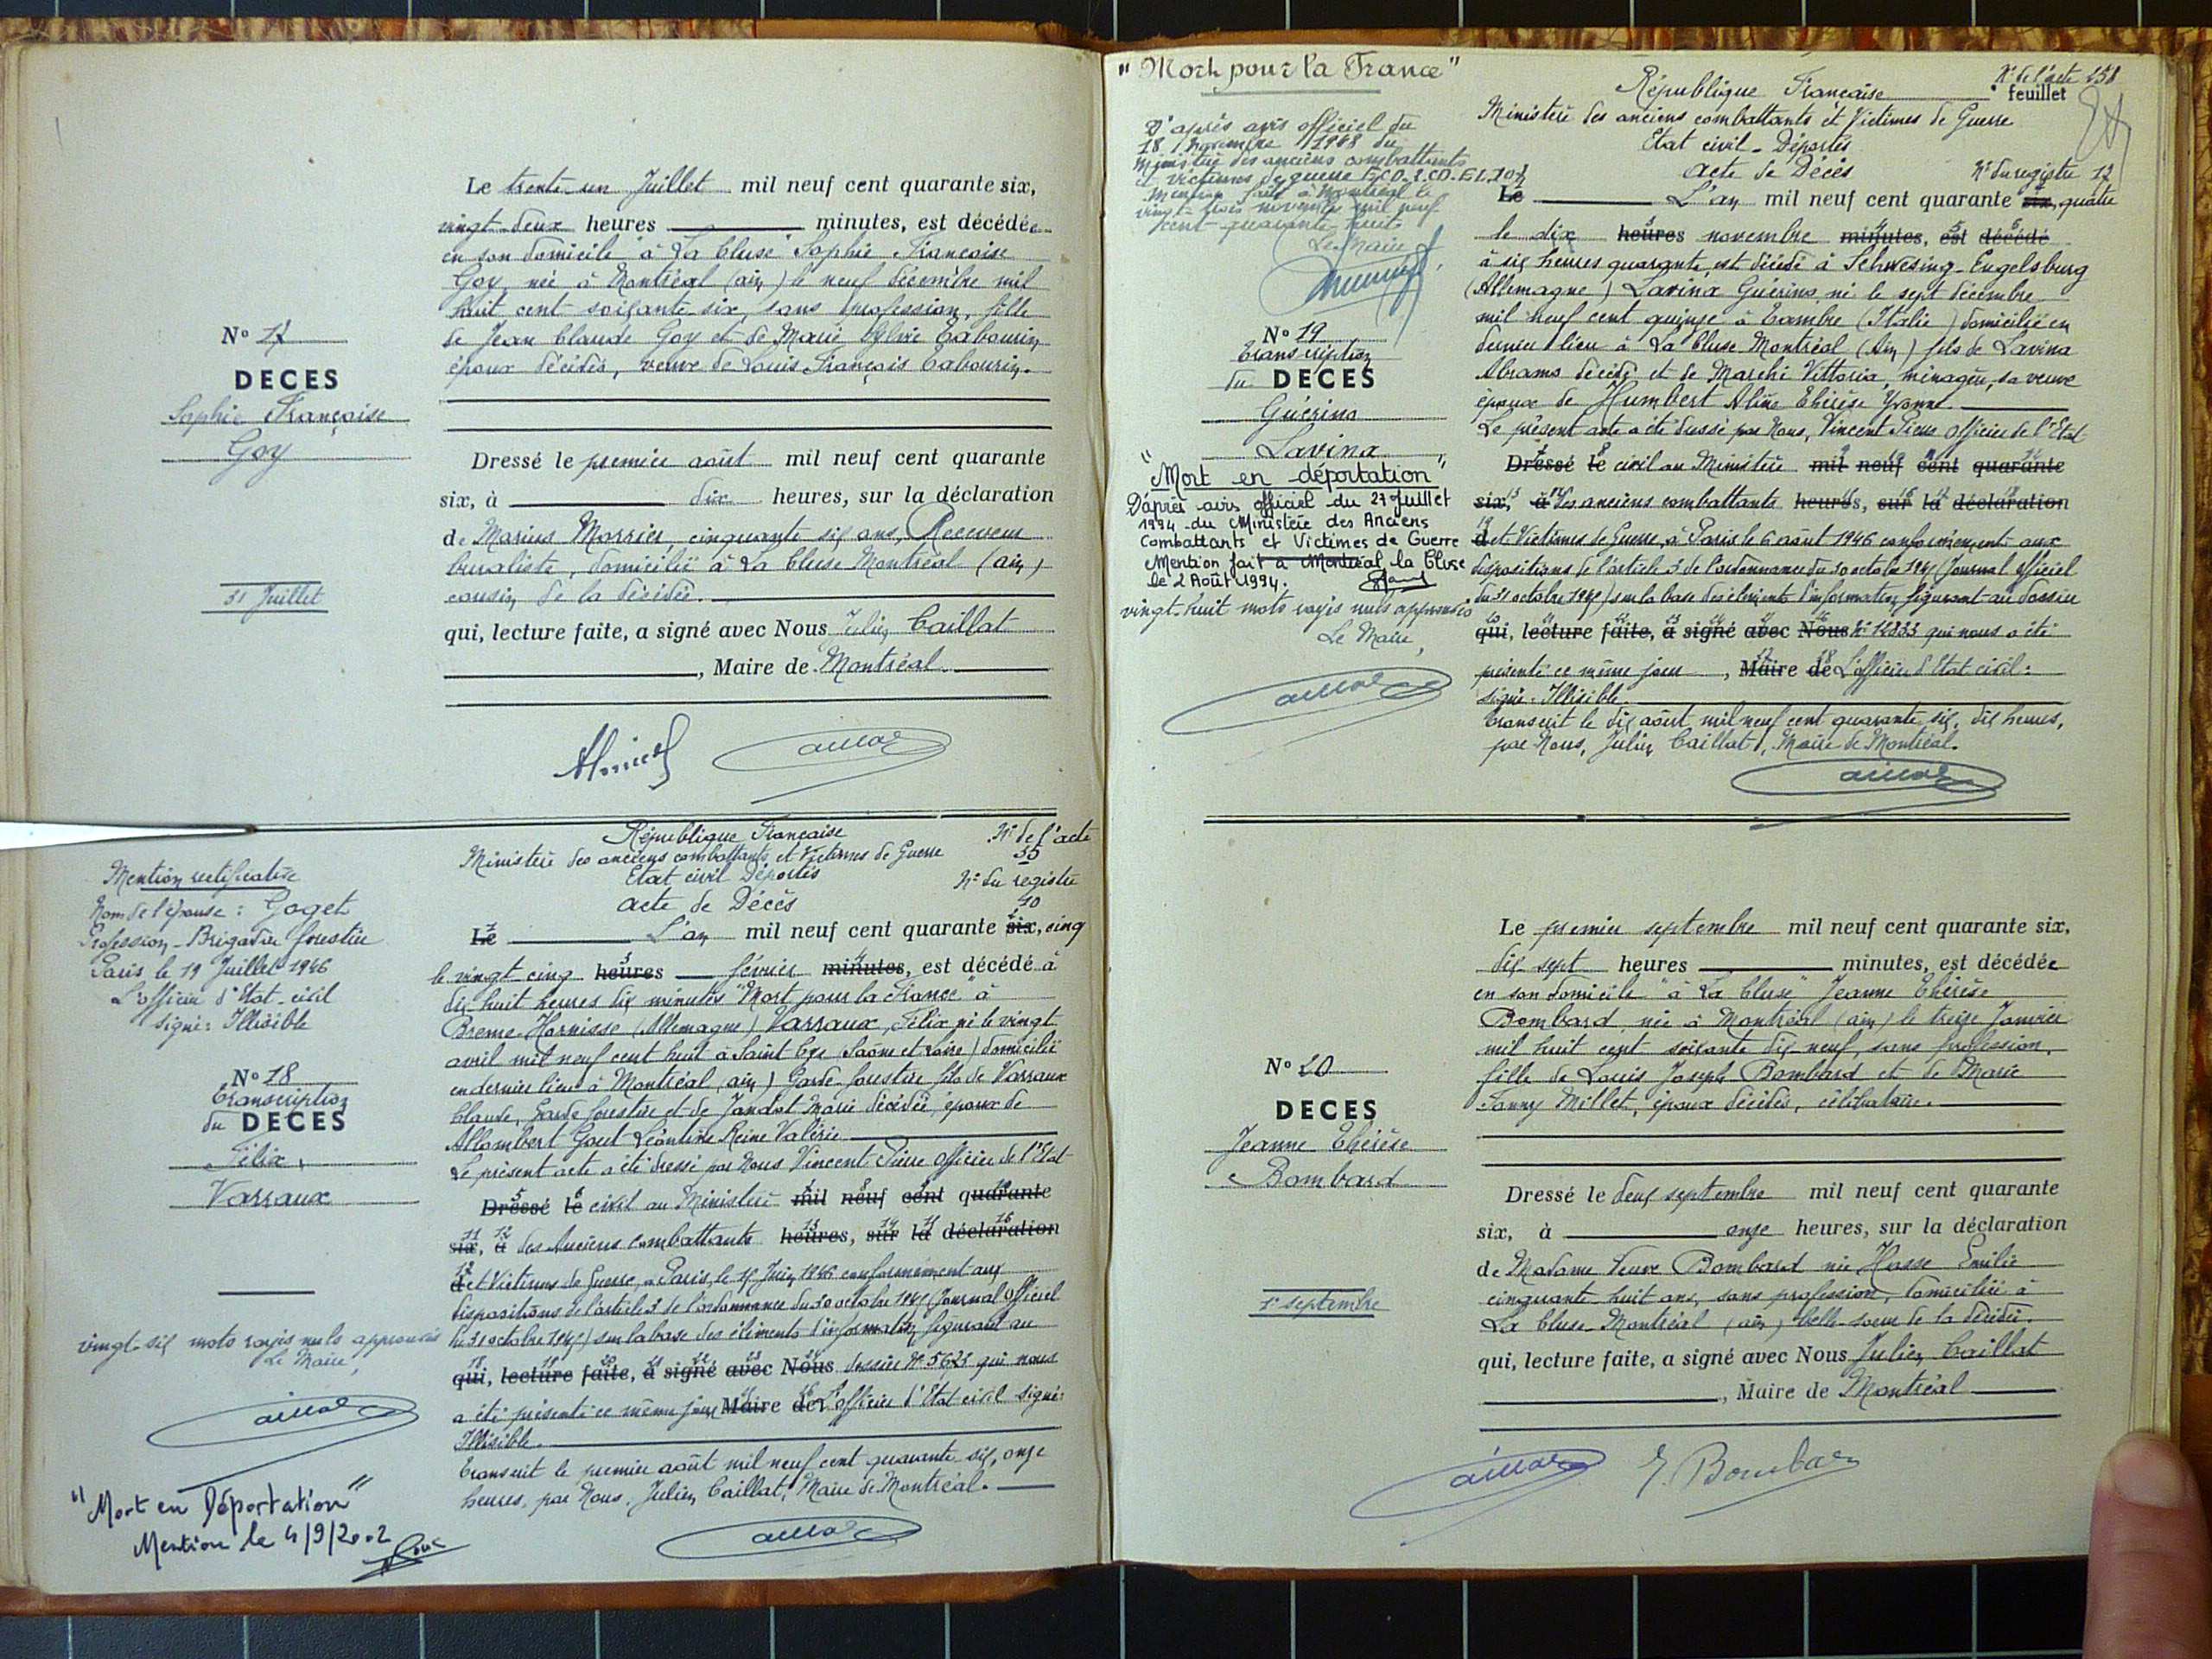 Le trente-un Juillet mil neuf cent quarante six,
vingt-deux heures minutes, est décédée
en son domicile "à La Cluse" Sophie Françoise
Goy, née à Montréal (ain) le neuf décembre mil
huit cent soixante six, sans profession, fille
de Jean Claude Goy et de Marie Sylvie Cabourin,
époux décédés, veuve de Louis François Cabourin.
N° 17
DECES
Sophie Françoise
Goy
31 Juillet
Dressé le premier août mil neuf cent quarante
six, à dix heures, sur la déclaration
de Marius cinquante six ans, Receveur
buraliste, domicilié à La Cluse Montréal (ain)
cousin de la décédée.
qui, lecture faite, a signé avec Nous Julien Caillat
, Maire de Montréal.
République Française
N° de l'acte
Ministère des anciens combattants et Victimes de Guerre
35
Etat civil Déportés
N° du registre
acte de Décès
10
Le L'an mil neuf cent quarante six, cinq
le vingt cinq heures février minutes, est décédé à
dix-huit heures dix minutes "Mort pour la France" à
Breme-Hornisse (Allemagne) Varraux, Félix né le vingt
avril mil neuf cent huit à Saint Cyr (Saône et Loire) domicilié
en dernier lieu à Montréal (ain) Garde-forestier fils de Varraux
Claude, Garde forestier et de Jandot Marie décédée, époux de
Allombert Goet Léontine Reine Valérie
Le présent acte a été dressé par Nous Vincent Pierre Officier de l'Etat
Dressé le civil au Ministère mil neuf cent quarante
six, à des Anciens Combattants heures, sur la déclaration
d et Victimes de Guerre, à Paris, le 17 Juin 1946 conformément aux
dispositions de l'article 3 de l'ordonnance du 30 octobre 1945 (Journal Officiel
du 31 octobre 1945) sur la base des éléments d'information figurant au
qui, lecture faite, a signé avec Nous dossier N° 5623 qui nous
a été présenté ce même jour Maire de L'officier d'Etat civil signé:
Illisible.
Transcrit le premier août mil neuf cent quarante-six, onze
heures, par Nous, Julien Caillat, Maire de Montréal.
Mention rectificative
Nom de l'épouse : Goget
Profession - Brigadier forestier
Paris, le 19 Juillet 1946
L'officier d'Etat-civil
signé: Illisible
N° 18
Transcription
du DECES
Félix,
Varraux
vingt-six mots rayés nuls approuvés
Le Maire,
"Mort en Déportation"
Mention le 4/9/2002
"Mort pour la France"
D'après avis officiel du
18 Novembre 1948 du
Ministère des anciens combattants
et victimes de guerre
Mention faite à Montréal le
vingt-trois novembre mil neuf
cent quarante-huit
Le Maire
N° 19
Transcription
du DECES
Guérino
Lavina
"Mort en déportation"
D'après avis officiel du 27 Juillet
1994 du Ministère des Anciens
Combattants et Victimes de Guerre
Mention fait à Montréal la Cluse
le 2 Août 1994.
vingt-huit mots rayés nuls approuvés
Le Maire,
République Française
N° de l'acte 158
feuillet
Ministère des anciens combattants et Victimes de Guerre
Etat civil - Déportés
acte de Décès
N° du registre 12
Le L'an mil neuf cent quarante six, quatre
le dix heures novembre minutes, est décédé
à six heures quarante, est décédé à Schwesing-Engelsburg
(Allemagne) Lavina Guérino, né le sept décembre
mil neuf cent quinze à Tambre (Italie) domicilié en
dernier lieu à La Cluse Montréal (Ain) fils de Lavina
Abramo décédé et de Marchi Vittoria, ménagère, sa veuve
époux de Humbert Aline Thérèse Yvonne.
Le présent acte a été dressé par Nous, Vincent Pierre Officier de l'Etat
Dressé le civil au Ministère mil neuf cent quarante
six, à des anciens combattants heures, sur la déclaration
d et Victimes de Guerre, à Paris le 6 août 1946 conformément aux
dispositions de l'article 3 de l'ordonnance du 30 octobre 1945 (Journal officiel
du 31 octobre 1945) sur la base des éléments d'information figurant au dossier
qui, lecture faite, a signé avec Nous N° 14333 qui nous a été
présenté ce même jour, Maire de L'officier d'Etat civil:
signé: Illisible.
Transcrit le dix août mil neuf cent quarante six, dix heures,
par Nous, Julien Caillat, Maire de Montréal.
Le premier septembre mil neuf cent quarante six,
dix-sept heures minutes, est décédée
en son domicile "à La Cluse" Jeanne Thérèse
Bombard, née à Montréal (ain) le treize Janvier
mil huit cent soixante dix-neuf, sans profession,
fille de Louis Joseph Bombard et de Marie
Fanny Millet, époux décédés, célibataire.
N° 20
DECES
Jeanne Thérèse
Bombard
1er septembre
Dressé le deux septembre mil neuf cent quarante
six, à onze heures, sur la déclaration
de Madame Veuve Bombard née Hasse Emilie
cinquante huit ans, sans profession, domiciliée à
La Cluse-Montréal (ain) belle-soeur de la décédée.
qui, lecture faite, a signé avec Nous Julien Caillat
, Maire de Montréal
E. Bombard